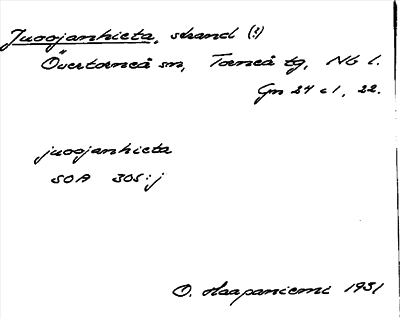 Juoojanhieta, strand (?)
Övertorneå sn, Torneå tg, Nb l.
Gn 24 c 1, 22.
juoojanhieta
SOA 305:j
O. Haapaniemi 1931